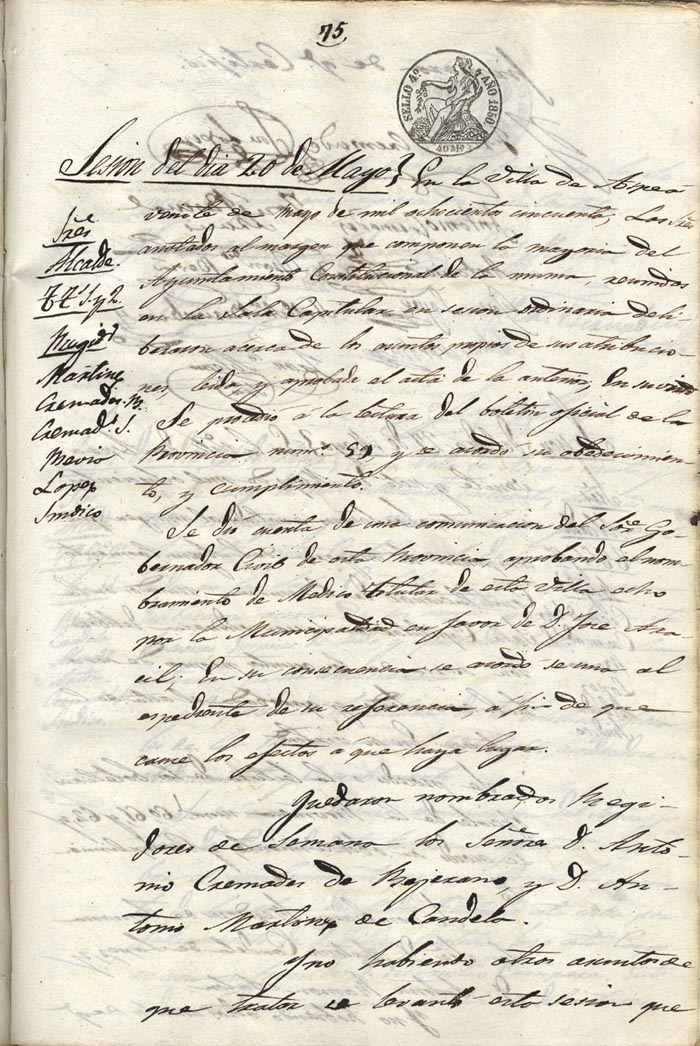 75.
SELLO 4º AÑO 1850
40 Ms.
Sesion del dia 20 de Mayo} En la Villa de Aspea
veinte de mayo de mil ochocientos cincuenta, Los Sres
anotados al margen que componen la mayoria del
Ayuntamiento Constitucional de la misma, reunidos
en la Sala Capitular en sesion ordinaria deli-
beraron acerca de los asuntos propios de sus atribucio-
nes, leida y aprobada el acta de la anterior, En su virtud
Se procedió á la lectura del boletin oficial de la
Provincia num.º 59 y se acordó su obedecimien-
to, y cumplimento.
Se dió cuenta de una comunicacion del Sor Go-
bernador Civil de esta Provincia aprobando el nom-
bramiento de Medico titular de esta Villa echo
por la Municipalidad en favor de D. Jose Ara-
cil; En su consecuencia se acordó se una al
espediente de su referencia, a fin de que
cause los efectos á que haya lugar.
Quedaron nombrados Regi-
dores de Semana los Señores D. Anto-
nio Cremades de Bejerano, y D. An-
tonio Martinez de Candela.
Y no habiendo otros asuntos de
que tratar se levantó esta sesion que
Sres
Alcalde.
TTes 1. y 2.
Regids
Martinez
Cremades. B.
Cremads. S.
Lopez
Sindico